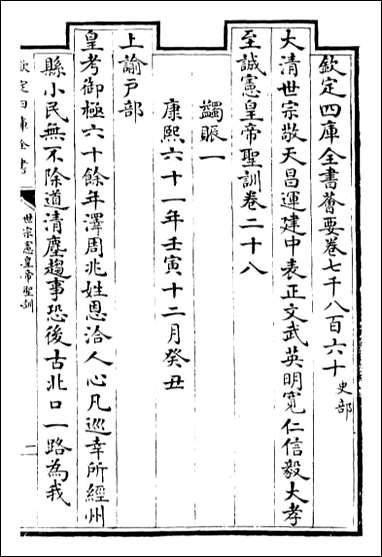 欽定四庫全書薈要卷七千八百六十 史部
大清世宗敬天昌運建中表正文武英明寛仁信毅大孝
至誠憲皇帝聖訓卷二十八
蠲賑一
康熙六十一年壬寅十二月癸丑
上諭户部
皇考御極六十餘年澤周兆姓恩洽人心凡巡幸所經州
縣小民無不除道清塵趨事恐後古北口一路為我
欽定四庫全書
世宗憲皇帝聖訓
一